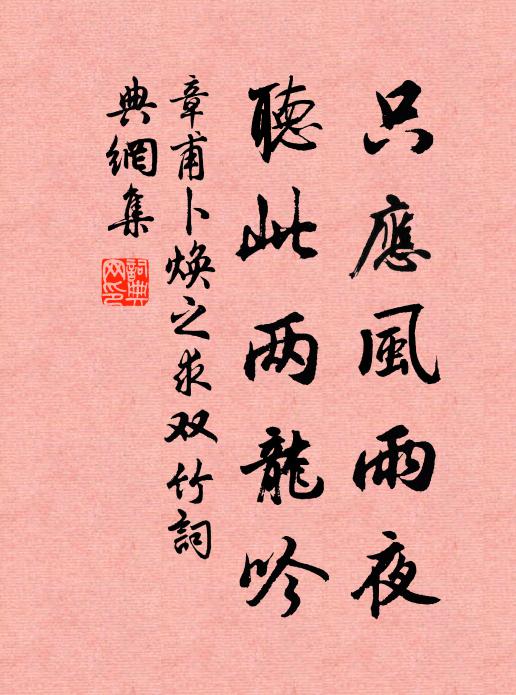 只應風雨夜
聽此两龍吟
章甫卜煥之求双竹詞
典網集
詞典网印